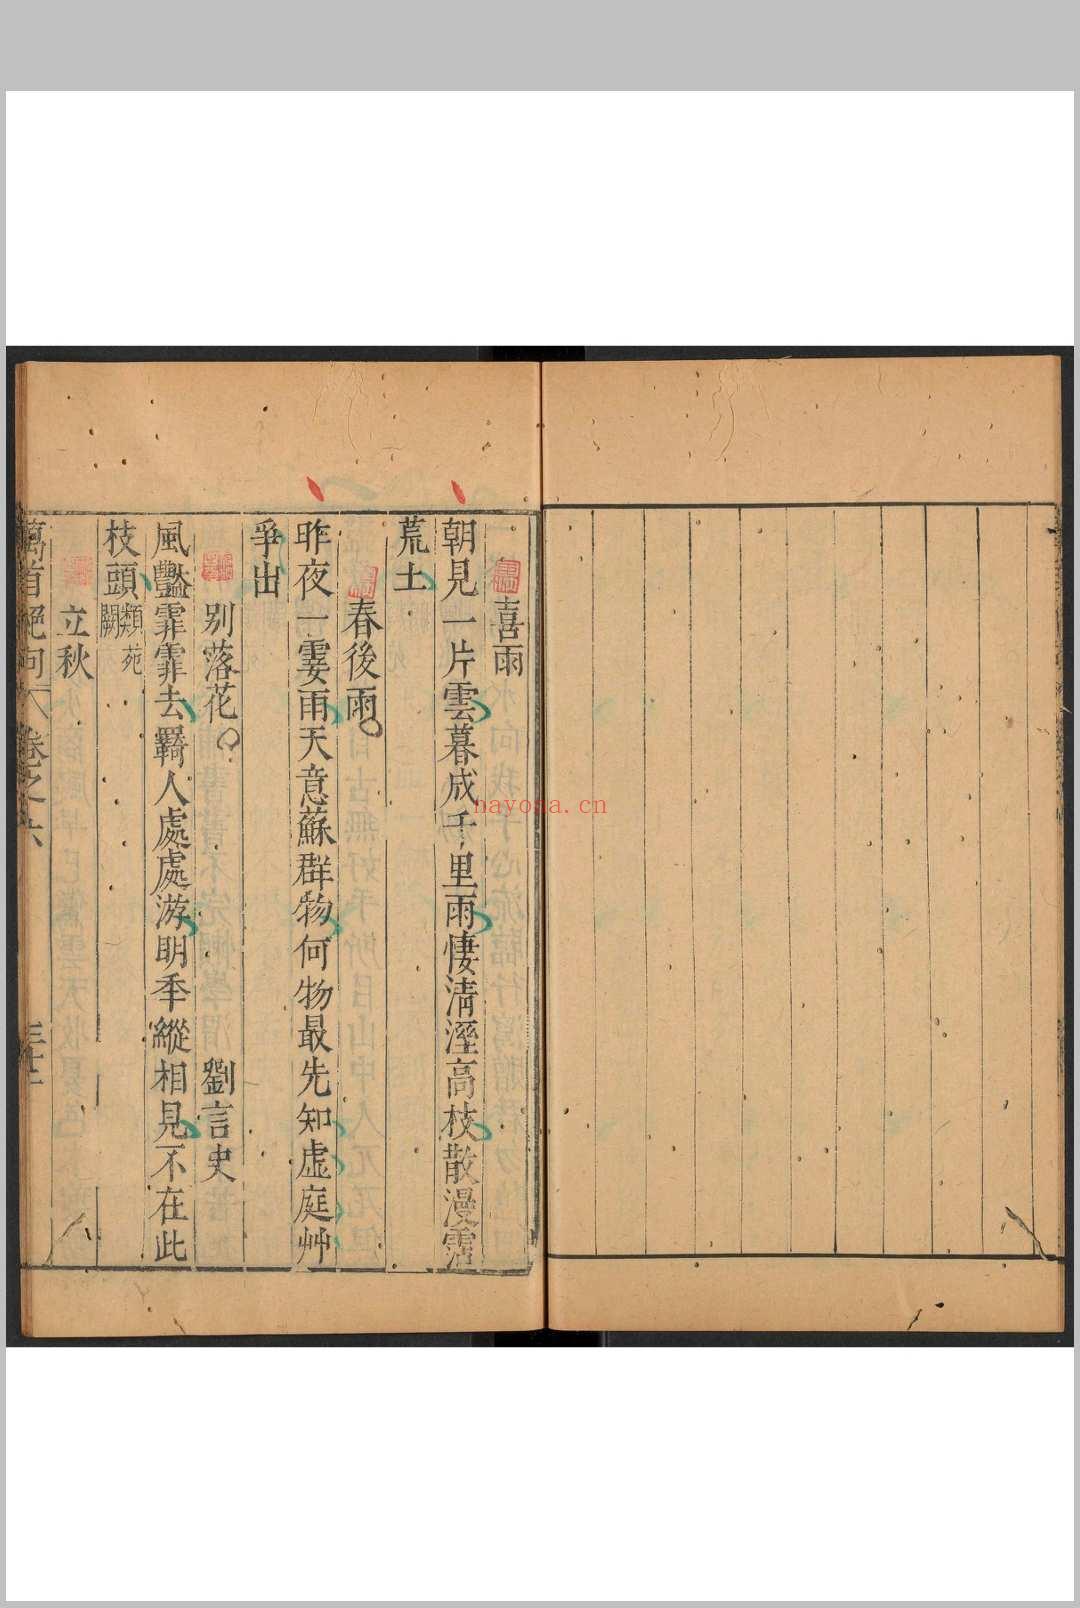 喜雨
朝見一片雲暮成千里雨悽清溼高枝散漫霑
荒土
春後雨
昨夜一霎雨天意蘇群物何物最先知虛庭艸
爭出
别落花
劉言史
風豔霏霏去羇人處處游明年縱相見不在此
枝頭類苑闕
立秋
萬首絕句 卷之六
nayona.cn